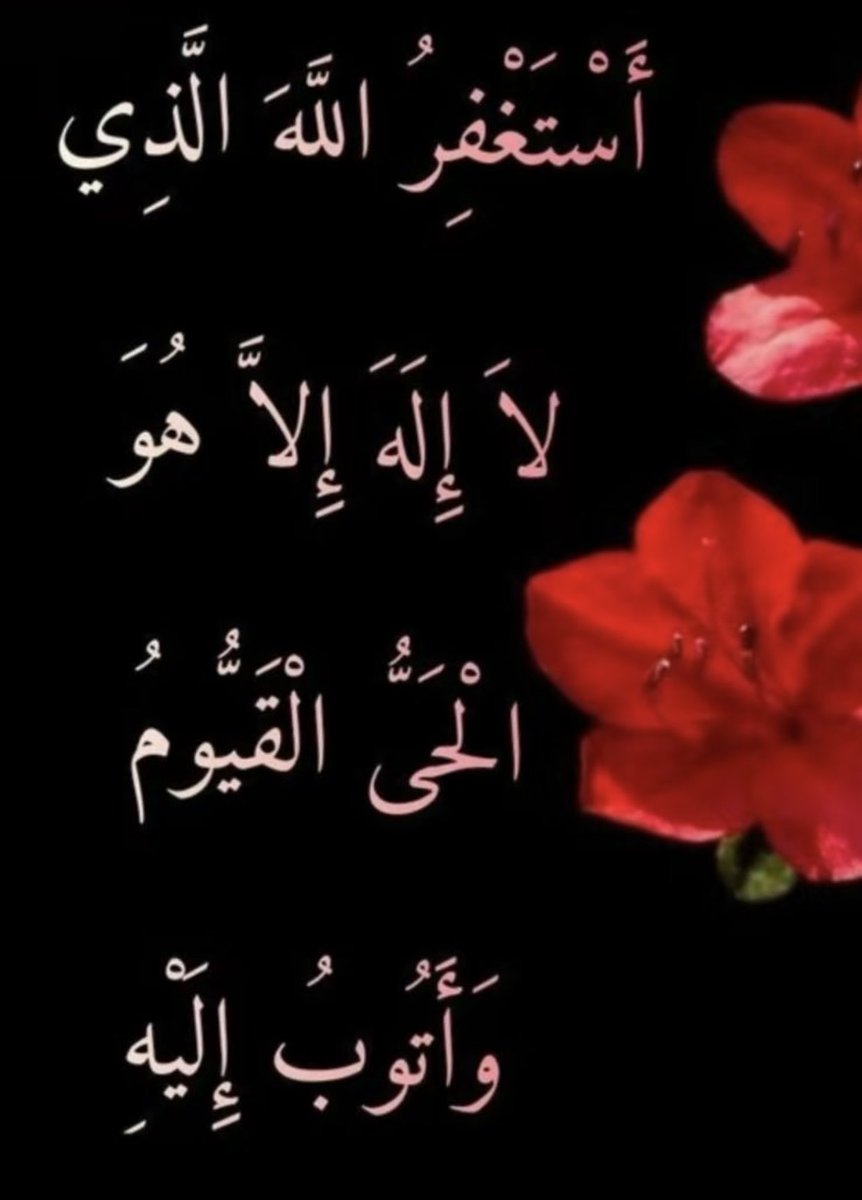 أَسْتَغْفِرُ اللَّهَ الَّذِي
لاَ إِلَهَ إِلاَّ هُوَ
الْحَىُّ الْقَيُّومُ
وَأَتُوبُ إِلَيْهِ